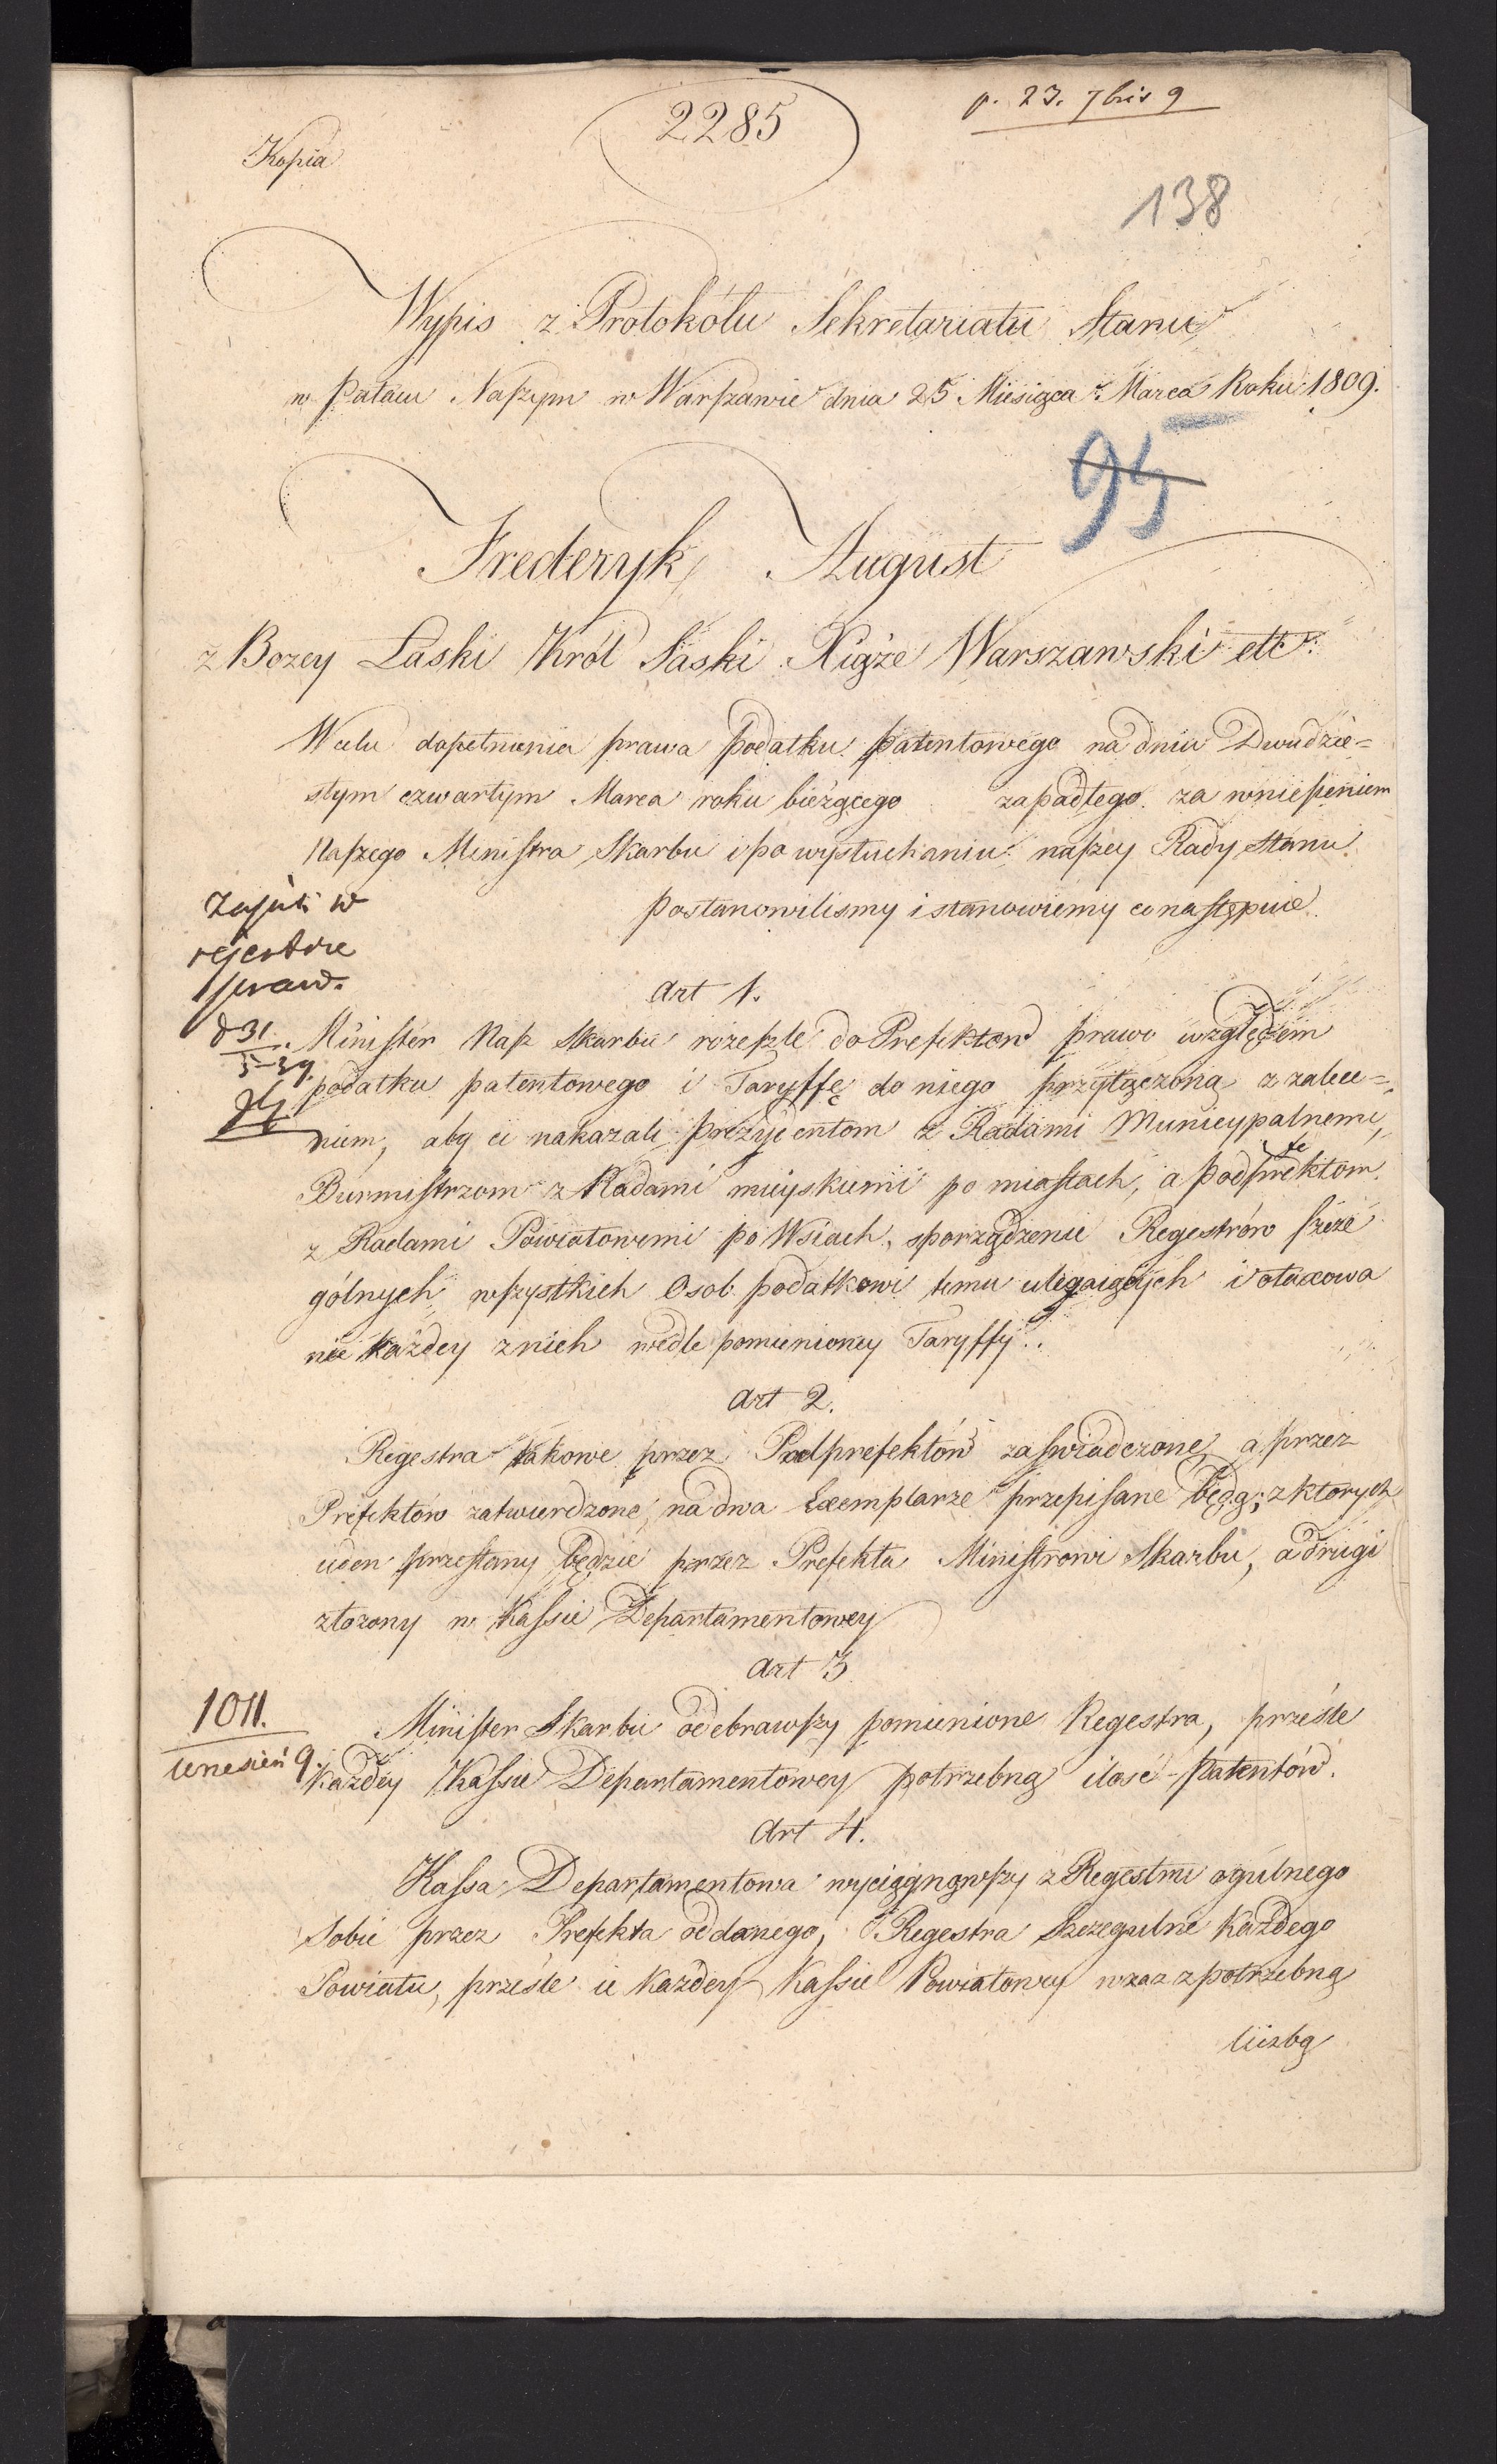 p. 23. 7bris 9
2285
Kopia
138
Wypis z Protokółu Sekretariatu Stanu
w Pałacu Naszym w Warszawie dnia 25 Miesiąca Marca Roku 1809.
95
Frederyk August
z Bozey Łaski Król Saski Xiąże Warszawski etc:
W celu dopełnienia prawa podatku patentowego na dniu Dwudzie=
stym czwartym Marca roku bieżącego zapadłego za wniesieniem
Naszego Ministra Skarbu i po wysłuchaniu naszey Rady Stanu
postanowilismy i stanowiemy co następuie.
w
rejestrze
spraw.
d 31.
Art 1.
Minister Nasz Skarbu rozeszle do Prefektow prawo względem
podatku patentowego i Taryffę do niego przyłączoną z zalece=
niem, aby ci nakazali Prezydentom z Radami Municypalnemi,
Burmistrzom z Radami mieyskiemi po miastach, a Podprefektom
z Radami Powiatowemi po Wsiach, sporządzenie Regestrów szcze
gólnych wszystkich Osob podatkowi temu ulegaiących i otaxowa
nie każdey z nich wedle pomienioney Taryffy.
Art 2.
Regestra takowe przez Podprefektów zaswiadczone, a przez
Prefektów zatwierdzone, na dwa Exemplarze przepisane będą; z ktorych
ieden przesłany będzie przez Prefekta Ministrowi Skarbu, a drugi
złozony w Kassie Departamentowey
Art 3
1011.
wrzesień 9.
Minister Skarbu odebrawszy pomienione Regestra, prześle
każdey Kassie Departamentowey potrzebną ilość Patentów.
Art 4.
Kassa Departamentowa wyciągnąwszy z Regestru ogulnego
sobie przez Prefekta oddanego, Regestra szczegulne każdego
Powiatu, prześle ie każdey Kassie Powiatowey wraz z potrzebną
liczbą